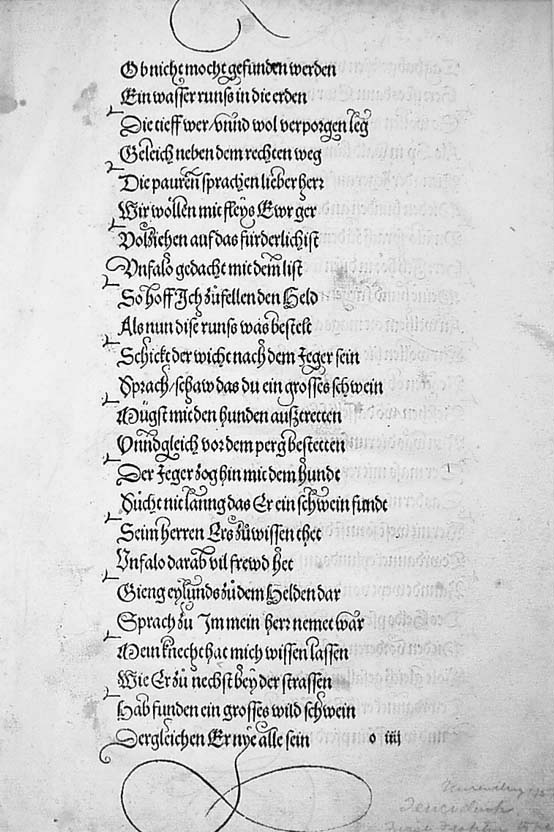 Ob nicht mocht gefunden werden
Ein wasser runß in die erden
Die tieff wer/vnnd wol verporgen leg
Geleich neben dem rechten weg
Die pauren sprachen lieber herr
Wir wöllen mit fleys Ewr ger
Volziehen auf das fürderlichist
Vnfalo gedacht mit dem list
So hoff Ich zů fellen den Held
Als nun dise runß was bestelt
Schickt der wicht nach dem Jeger sein
Sprach/schaw das du ein grosses schwein
Mügst mit den hunden außtretten
Vnnd gleich vor dem perg bestetten
Der Jeger zog hin mit dem hundt
Sücht nit lanng das Er ein schwein fundt
Seim herren Ers zů wissen thet
Vnfalo darab vil frewd het
Gieng eylunds zů dem Helden dar
Sprach zu Im mein herr nemet war
Mein knecht hat mich wissen lassen
Wie Er zů nechst bey der strassen
Hab funden ein grosses wild schwein
Dergleichen Er nye alle sein
o iiij